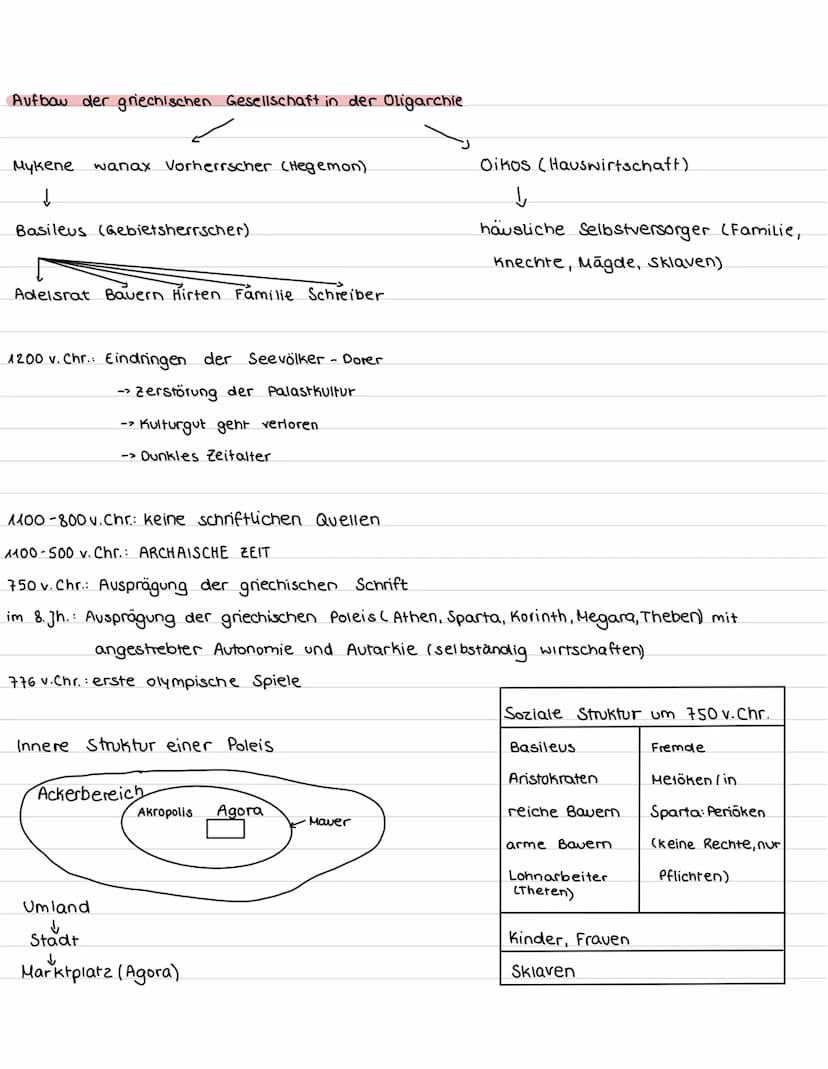 Aufbau der griechischen Gesellschaft in der Oligarchie
Mykene wanax Vorherrscher (Hegemon)
Oikos (Hauswirtschaft)
↓
↓
Basileus (Gebietsherrscher)
häusliche Selbstversorger (Familie,
Knechte, Mägde, Sklaven)
Adelsrat Bauern Hirten Familie Schreiber
1200 v. Chr.: Eindringen der Seevölker - Dorer
-> Zerstörung der Palastkultur
-> Kulturgut geht verloren
-> Dunkles Zeitalter
1100-800 v. Chr.: keine schriftlichen Quellen
1100-500 v. Chr.: ARCHAISCHE ZEIT
750 v. Chr.: Ausprägung der griechischen Schrift
im 8. Jh.: Ausprägung der griechischen Poleis (Athen, Sparta, Korinth, Megara, Theben) mit
angestrebter Autonomie und Autarkie (selbständig wirtschaften)
776 v. Chr.: erste olympische Spiele
Innere Struktur einer Poleis
Ackerbereich
Akropolis
Agora
Mauer
Umland
↓
Stadt
↓
Marktplatz (Agora)
Soziale Struktur um 750 v. Chr.
Basileus
Aristokraten
reiche Bauern
arme Bauern
Lohnarbeiter
(Theten)
Fremde
Metöken/in
Sparta: Periöken
(keine Rechte, nur
Pflichten)
Kinder, Frauen
Sklaven